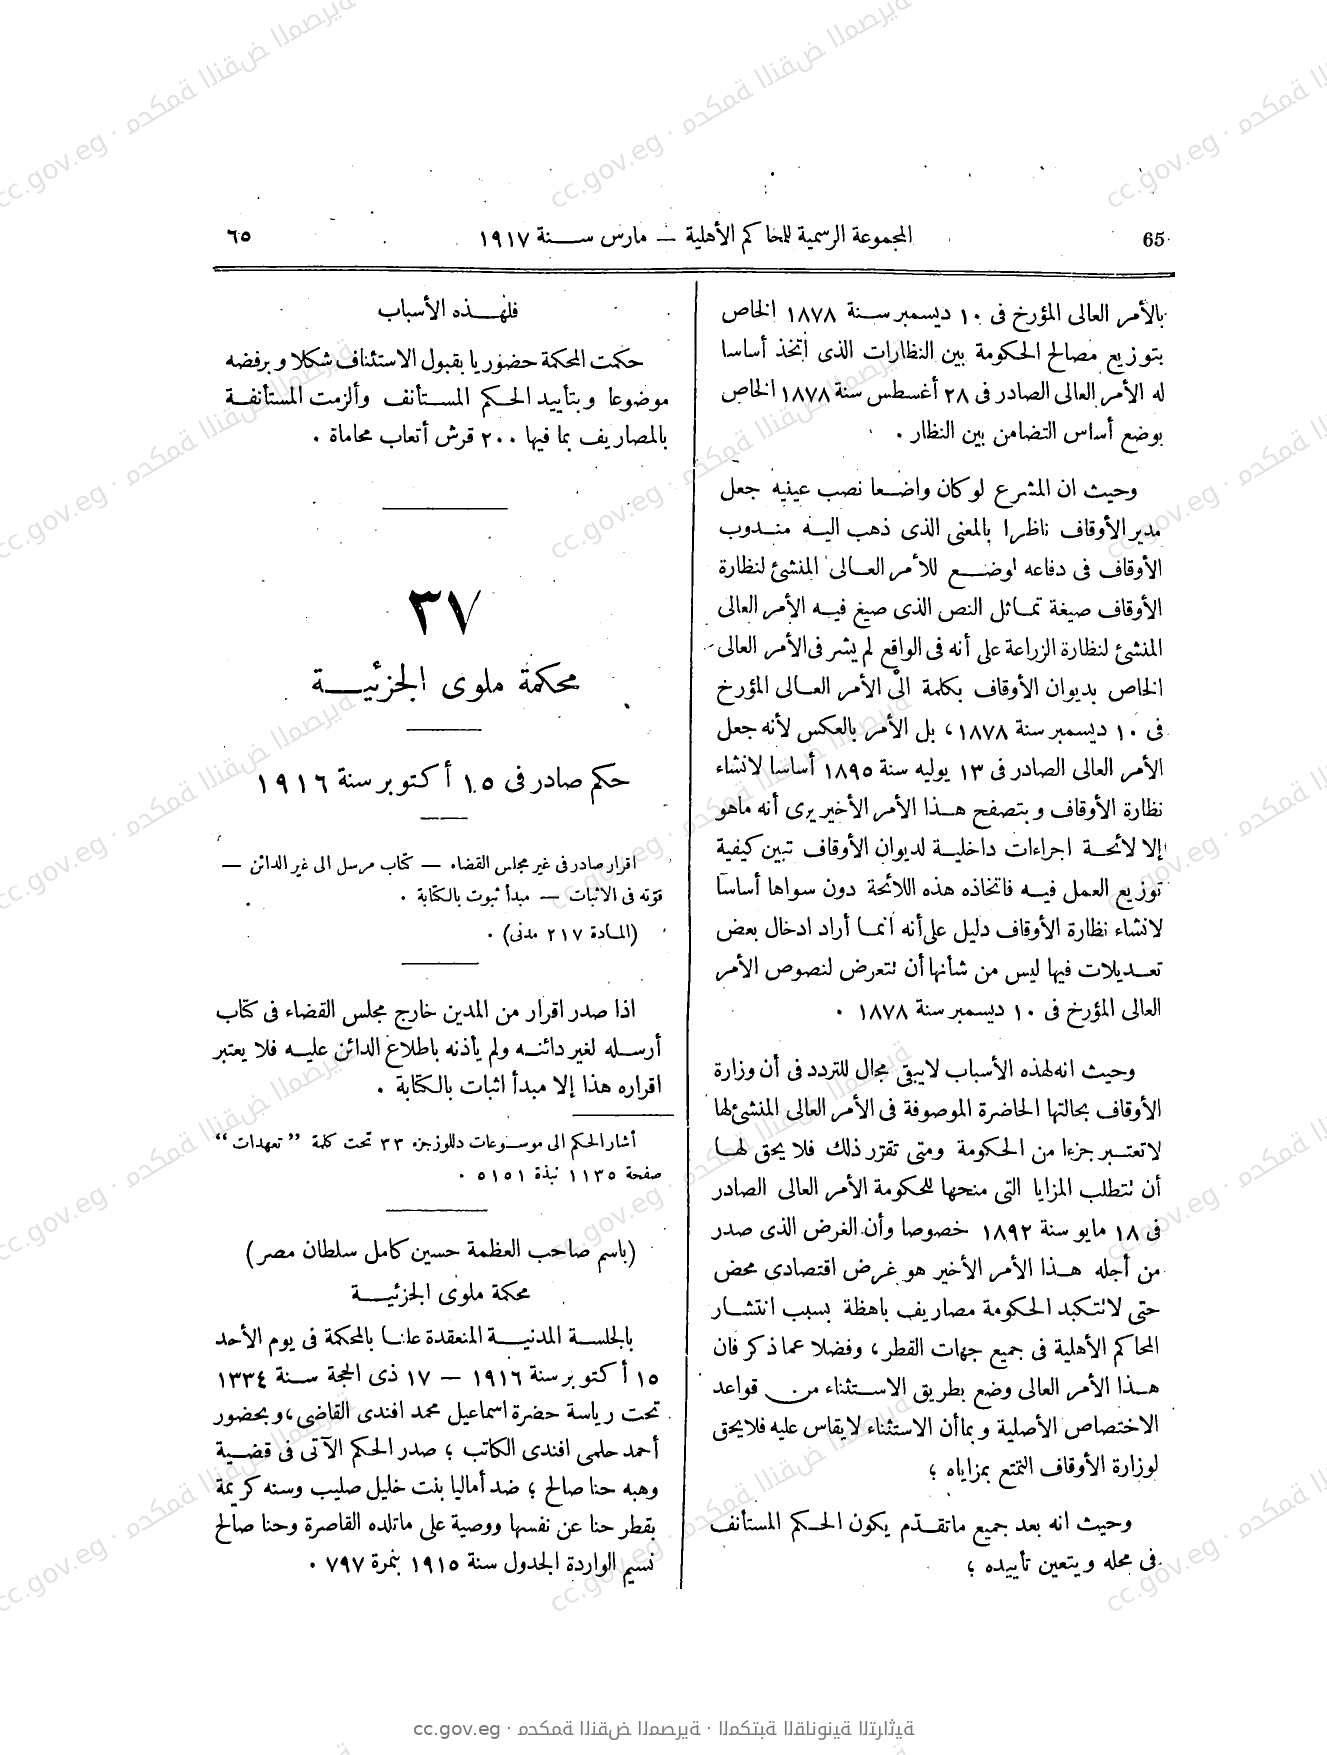 65
المجموعة الرسمية للمحاكم الأهلية – مارس سنة ١٩١٧
٦٥
بالأمر العالى المؤرخ فى ١٠ ديسمبر سنة ١٨٧٨ الخاص
بتوزيع مصالح الحكومة بين النظارات الذى اتخذ أساسا
له الأمر العالى الصادر فى ٢٨ أغسطس سنة ١٨٧٨ الخاص
بوضع أساس التضامن بين النظار .
وحيث ان المشرع لو كان واضعا نصب عينيه جعل
مدير الأوقاف ناظرا بالمعنى الذى ذهب اليه مندوب
الأوقاف فى دفاعه لوضع للأمر العالى المنشئ لنظارة
الأوقاف صيغة تماثل النص الذى صيغ فيه الأمر العالى
المنشئ لنظارة الزراعة على أنه فى الواقع لم يشر فى الأمر العالى
الخاص بديوان الأوقاف بكلمة الى الأمر العالى المؤرخ
فى ١٠ ديسمبر سنة ١٨٧٨ ، بل الأمر بالعكس لأنه جعل
الأمر العالى الصادر فى ١٣ يوليه سنة ١٨٩٥ أساسا لانشاء
نظارة الأوقاف وبتصفح هذا الأمر الأخير يرى أنه ماهو
إلا لائحة اجراءات داخلية لديوان الأوقاف تبين كيفية
توزيع العمل فيه فاتخاذه هذه اللائحة دون سواها أساسا
لانشاء نظارة الأوقاف دليل على أنه انما أراد ادخال بعض
تعديلات فيها ليس من شأنها أن تتعرض لنصوص الأمر
العالى المؤرخ فى ١٠ ديسمبر سنة ١٨٧٨ .
وحيث انه لهذه الأسباب لايبقى مجال للتردد فى أن وزارة
الأوقاف بحالتها الحاضرة الموصوفة فى الأمر العالى المنشئ لها
لاتعتبر جزءا من الحكومة ومتى تقرّر ذلك فلا يحق لها
أن تتطلب المزايا التى منحها للحكومة الأمر العالى الصادر
فى ١٨ مايو سنة ١٨٩٢ خصوصا وأن الغرض الذى صدر
من أجله هذا الأمر الأخير هو غرض اقتصادى محض
حتى لاتتكبد الحكومة مصاريف باهظة بسبب انتشار
المحاكم الأهلية فى جميع جهات القطر ، وفضلا عما ذكر فان
هذا الأمر العالى وضع بطريق الاستثناء من قواعد
الاختصاص الأصلية وبما أن الاستثناء لايقاس عليه فلايحق
لوزارة الأوقاف التمتع بمزاياه ؛
وحيث انه بعد جميع ماتقدّم يكون الحكم المستأنف
فى محله ويتعين تأييده ؛
فلهذه الأسباب
حكمت المحكمة حضوريا بقبول الاستئناف شكلا وبرفضه
موضوعا وبتأييد الحكم المستأنف وألزمت المستأنفة
بالمصاريف بما فيها ٢٠٠ قرش أتعاب محاماة .
٣٧
محكمة ملوى الجزئية
حكم صادر فى ١٥ أكتوبر سنة ١٩١٦
اقرار صادر فى غير مجلس القضاء – كتاب مرسل الى غير الدائن –
قوّته فى الاثبات – مبدأ ثبوت بالكتابة .
(المادة ٢١٧ مدنى) .
اذا صدر اقرار من المدين خارج مجلس القضاء فى كتاب
أرسله لغير دائنه ولم يأذنه باطلاع الدائن عليه فلا يعتبر
اقراره هذا إلا مبدأ اثبات بالكتابة .
أشار الحكم الى موسوعات دللوز جزء ٣٣ تحت كلمة ”تعهدات“
صفحة ١١٣٥ نبذة ٥١٥١ .
(باسم صاحب العظمة حسين كامل سلطان مصر)
محكمة ملوى الجزئية
بالجلسة المدنية المنعقدة علنا بالمحكمة فى يوم الأحد
١٥ أكتوبر سنة ١٩١٦ – ١٧ ذى الحجة سنة ١٣٣٤
تحت رياسة حضرة اسماعيل محمد افندى القاضى ، وبحضور
أحمد حلمى افندى الكاتب ؛ صدر الحكم الآتى فى قضية
وهبه حنا صالح ؛ ضد أماليا بنت خليل صليب وسنه كريمة
بقطر حنا عن نفسها ووصية على ماتلده القاصرة وحنا صالح
نسيم الواردة الجدول سنة ١٩١٥ بنمرة ٧٩٧ .
cc.gov.eg · محكمة النقض المصرية · المكتبة القانونية التراثية